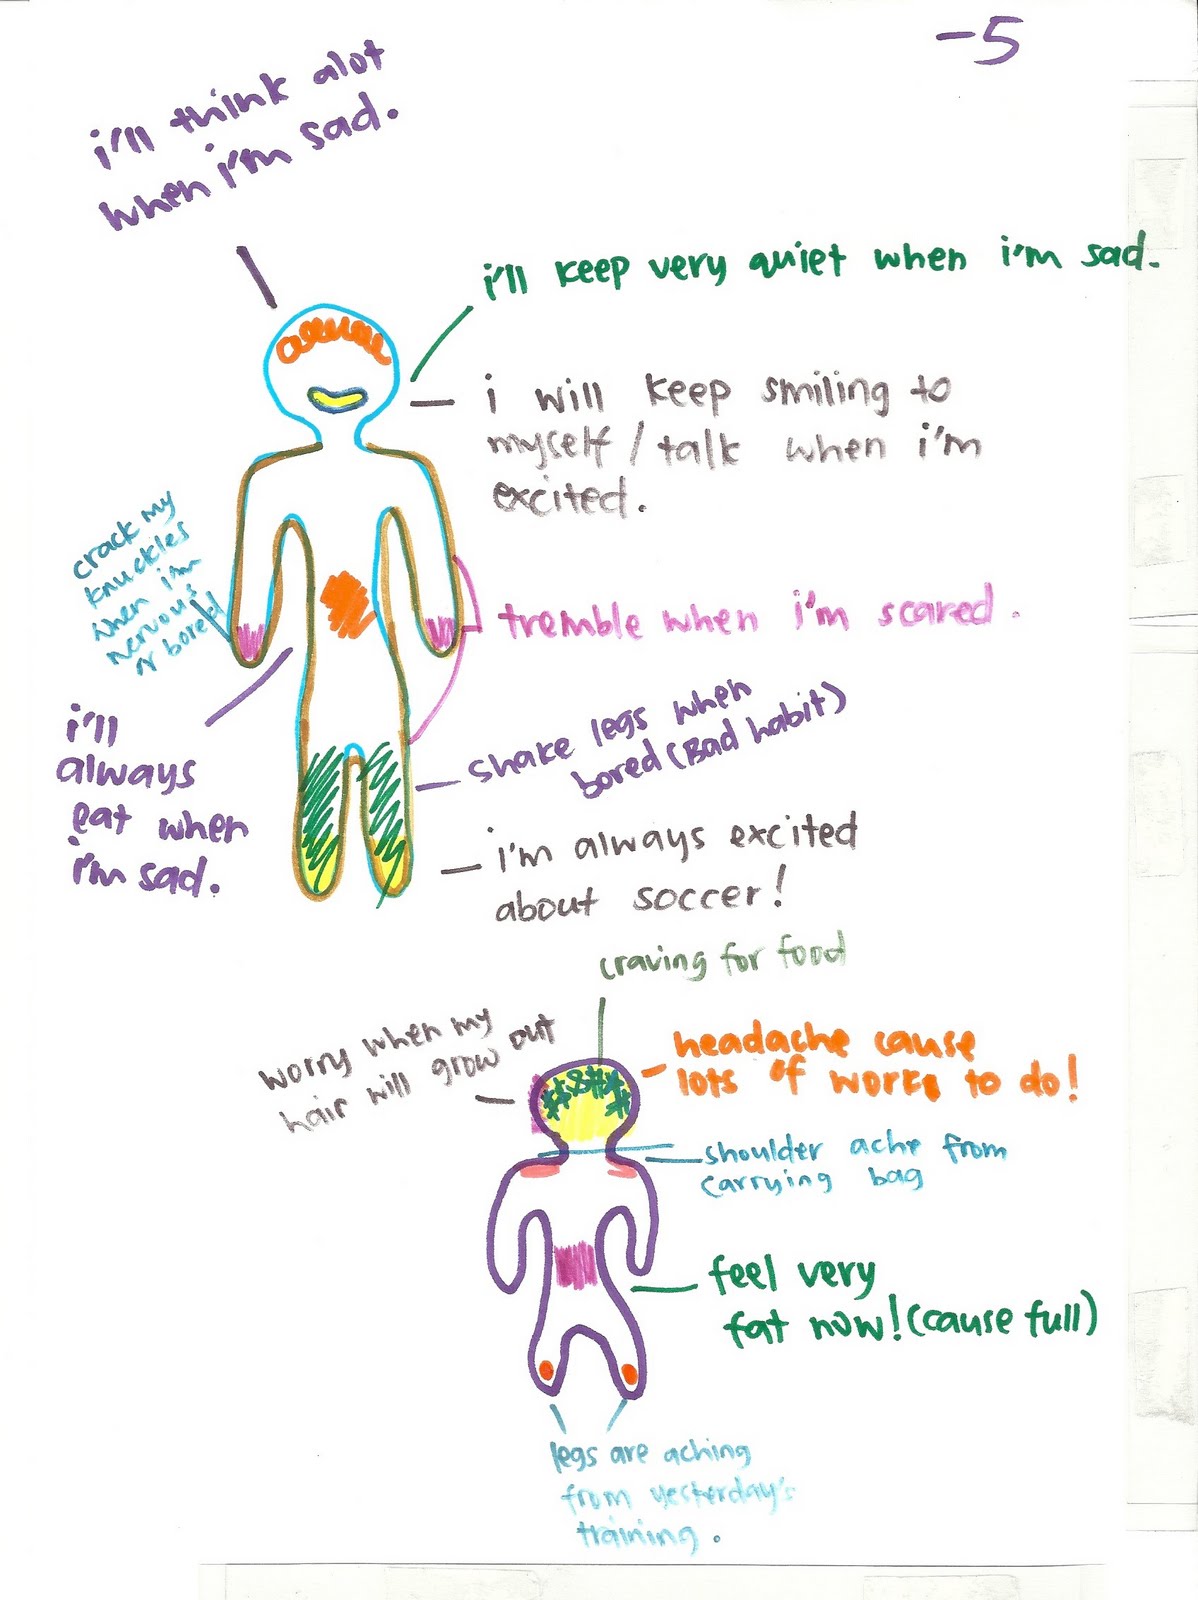 -5
i'll think alot
when i'm sad.
i'll keep very quiet when i'm sad.
i will keep smiling to
myself / talk when i'm
excited.
crack my
knuckles
when i'm
nervous
or bored
tremble when i'm scared.
i'll
always
eat when
i'm sad.
shake legs when
bored (Bad habit)
i'm always excited
about soccer!
craving for food
worry when my
hair will grow out
headache cause
lots of works to do!
shoulder ache from
carrying bag
feel very
fat now! (cause full)
legs are aching
from yesterday's
training.